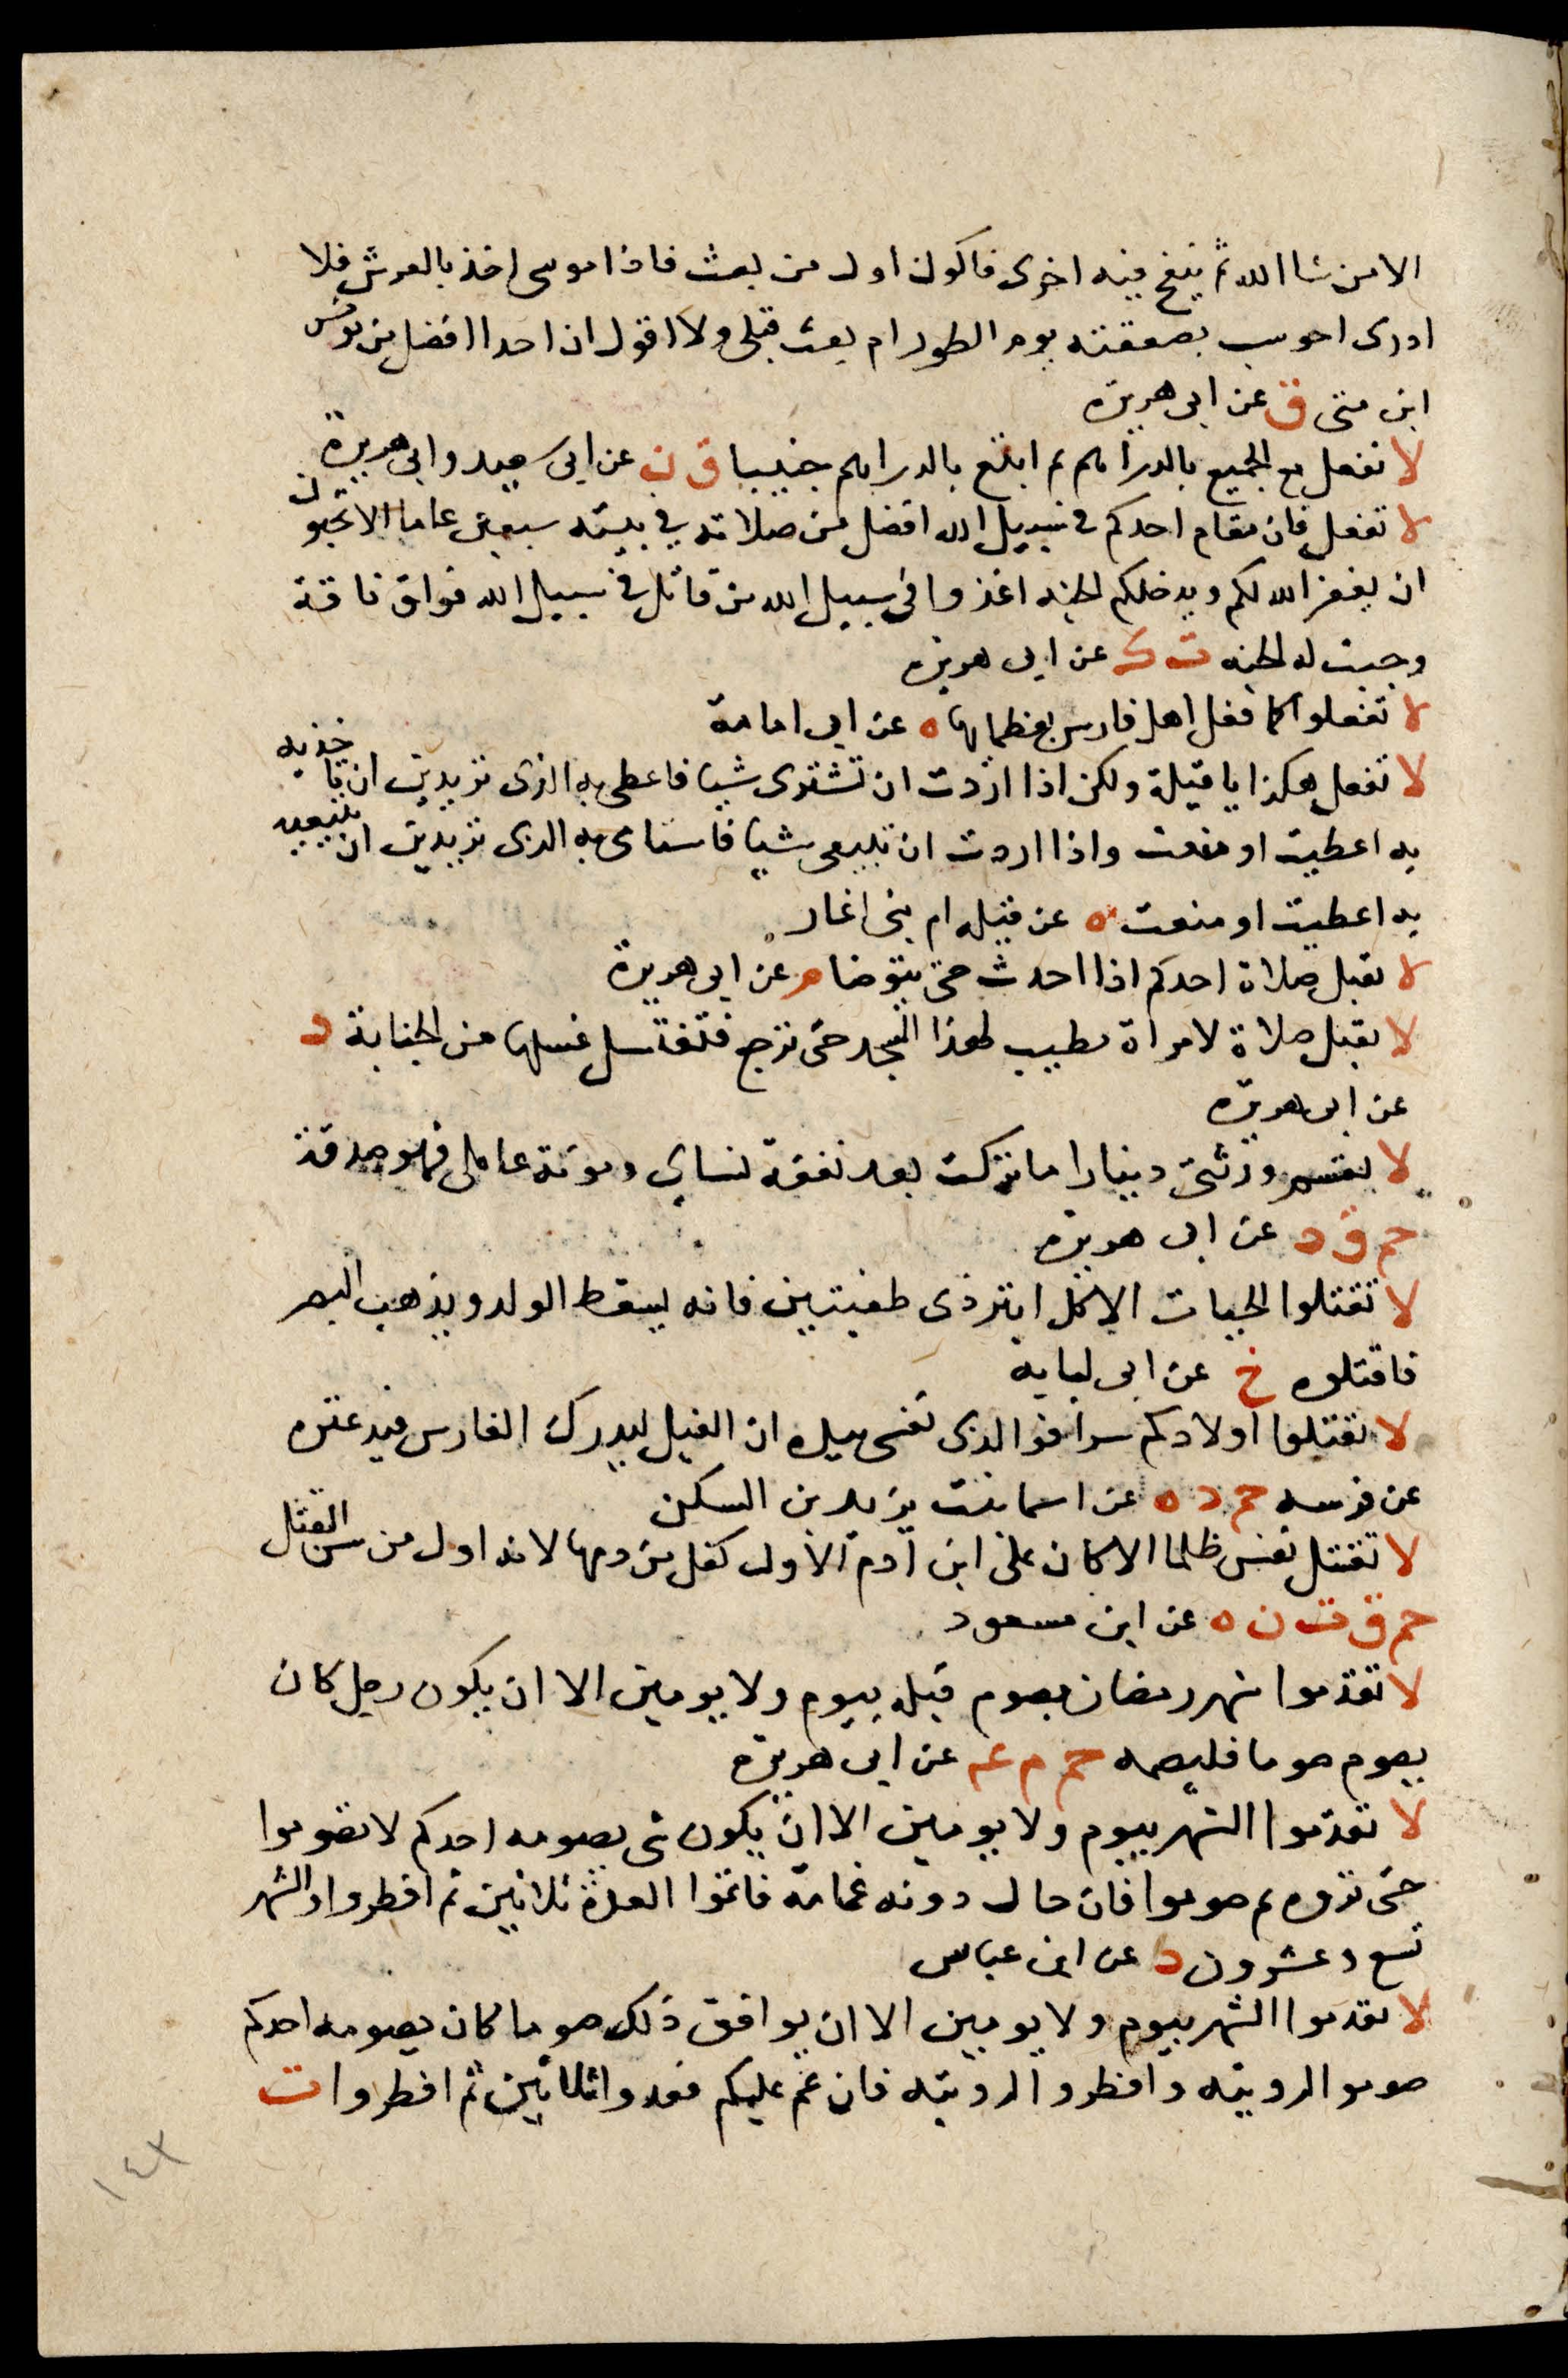 الا من شا الله ثم ينفخ فيه اخرى فاكون اول من بعث فاذا موسى اخذ بالعرش فلا
ادرى احوسب بصعقته يوم الطور ام بعث قبلى ولا اقول ان احدا افضل من يونس
ابن متى ق عن ابى هريرة
لا تفعل بع الجميع بالدراهم ثم ابتع بالدراهم جنيبا ق ن عن ابى سعيد وابى هريرة
لا تفعل فان مقام احدكم فى سبيل الله افضل من صلاته فى بيته سبعين عاما الا تحبون
ان يغفر الله لكم ويدخلكم الجنه اغزوا فى سبيل الله من قاتل فى سبيل الله فواق ناقة
وجبت له الجنه ت ك عن ابى هريره
لا تفعلوا كما فعل اهل فارس بعظمايها ه عن ابى امامة
لا تفعلى هكذا يا قيلة ولكن اذا اردت ان تشترى شيا فاعطى به الذى تريدين ان تاخذيه
به اعطيت او منعت واذا اردت ان تبيعى شيا فاستامى به الذى تريدين ان تبيعيه
به اعطيت او منعت ه عن قيله ام بنى انمار
لا تقبل صلاة احدكم اذا احدث حتى يتوضا م عن ابى هريرة
لا تقبل صلاة لامراة تطيب لهذا المسجد حتى ترجع فتغتسل غسلها من الجنابة د
عن ابى هريره
لا يقتسم ورثتى دينارا ما تركت بعد نفقة نساى ومونة عاملى فهو صدقة
حم ق د عن ابى هريره
لا تقتلوا الحيات الا كل ابتر ذى طفيتين فانه يسقط الولد ويذهب البصر
فاقتلوه خ عن ابى لبابه
لا تقتلوا اولادكم سرا فوالذى نفسى بيده ان الغيل ليدرك الفارس فيدعثره
عن فرسه حم د ه عن اسما بنت يزيد بن السكن
لا تقتل نفس ظلما الا كان على ابن آدم الاول كفل من دمها لانه اول من سن القتل
حم ق ت ن ه عن ابن مسعود
لا تقدموا شهر رمضان بصوم قبله بيوم ولا يومين الا ان يكون رجل كان
يصوم صوما فليصمه حم م عه عن ابى هريره
لا تقدموا الشهر بيوم ولا يومين الا ان يكون شى يصومه احدكم لا تصوموا
حتى تروه ثم صوموا فان حال دونه غمامة فاتموا العدة ثلاثين ثم افطروا والشهر
تسع وعشرون د عن ابن عباس
لا تقدموا الشهر بيوم ولا يومين الا ان يوافق ذلك صوما كان يصومه احدكم
صوموا لرويته وافطروا لرويته فان غم عليكم فعدوا ثلاثين ثم افطروا ت